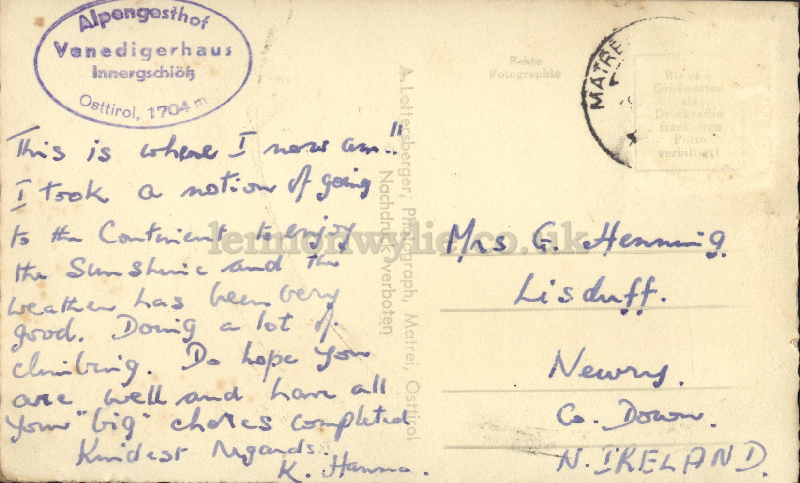 Alpengasthof
Venedigerhaus
Innergschlöß
Osttirol, 1704 m
This is where I now am!!
I took a notion of going
to the Continent to enjoy
the Sunshine and the
weather has been very
good. Doing a lot of
climbing. Do hope you
are well and have all
your "big" chores completed
Kindest Regards.
K. Hanna.
A. Lottersberger, Photograph, Matrei, Osttirol
Nachdruck verboten
Echte
Fotographie
MATRE
Bis zu 5
Grußworten
als
Drucksache
frankieren
Porto
verbilligt!
Mrs G. Henning.
Lisduff.
Newry.
Co. Down.
N. IRELAND.
lennonwylie.co.uk